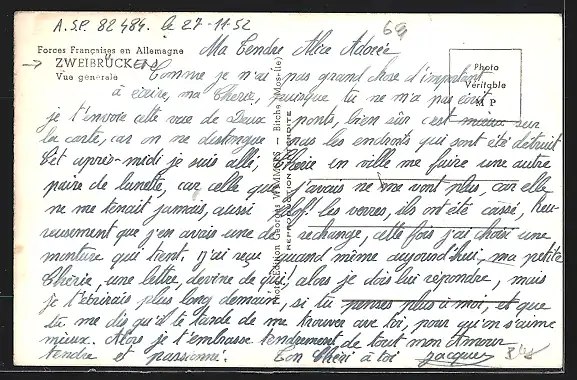 A.S.P. 82 484. le 27-11-52
69
Forces Françaises en Allemagne
ZWEIBRÜCKEN
Vue generale
Photo
Véritable
M P
Photo-Edition Georges WAMMES - Bitche (Mos-lle)
REPRODUCTION INTERDITE
Ma Tendre Alice Adorée
Comme je n'ai pas grand chose d'important
à écrire, ma Chérie, puisque tu ne m'a pas écrit
je t'envoie cette vue de Deux ponts, bien sûr c'est mieux sur
la carte, car on ne distingue pas les endroits qui sont été détruit
Cet après-midi je suis allé, Chérie en ville me faire une autre
paire de lunette, car celle que j'avais ne me vont plus, car elle
ne me tenait jamais, aussi plof! les verres, ils ont été cassé, heu-
reusement que j'en avais une de rechange, cette fois j'ai choisi une
monture qui tient. J'ai reçu quand même aujourd'hui, ma petite
Chérie, une lettre, devine de qui! alors je dois lui répondre, mais
je t'écrirais plus long demain, si tu penses plus à moi, et que
tu me dis qu'il te tarde de me trouver avec toi, pour qu'on s'aime
mieux. Alors je t'embrasse tendrement de tout mon Amour
tendre et passionné. Ton Chéri à toi Jacques